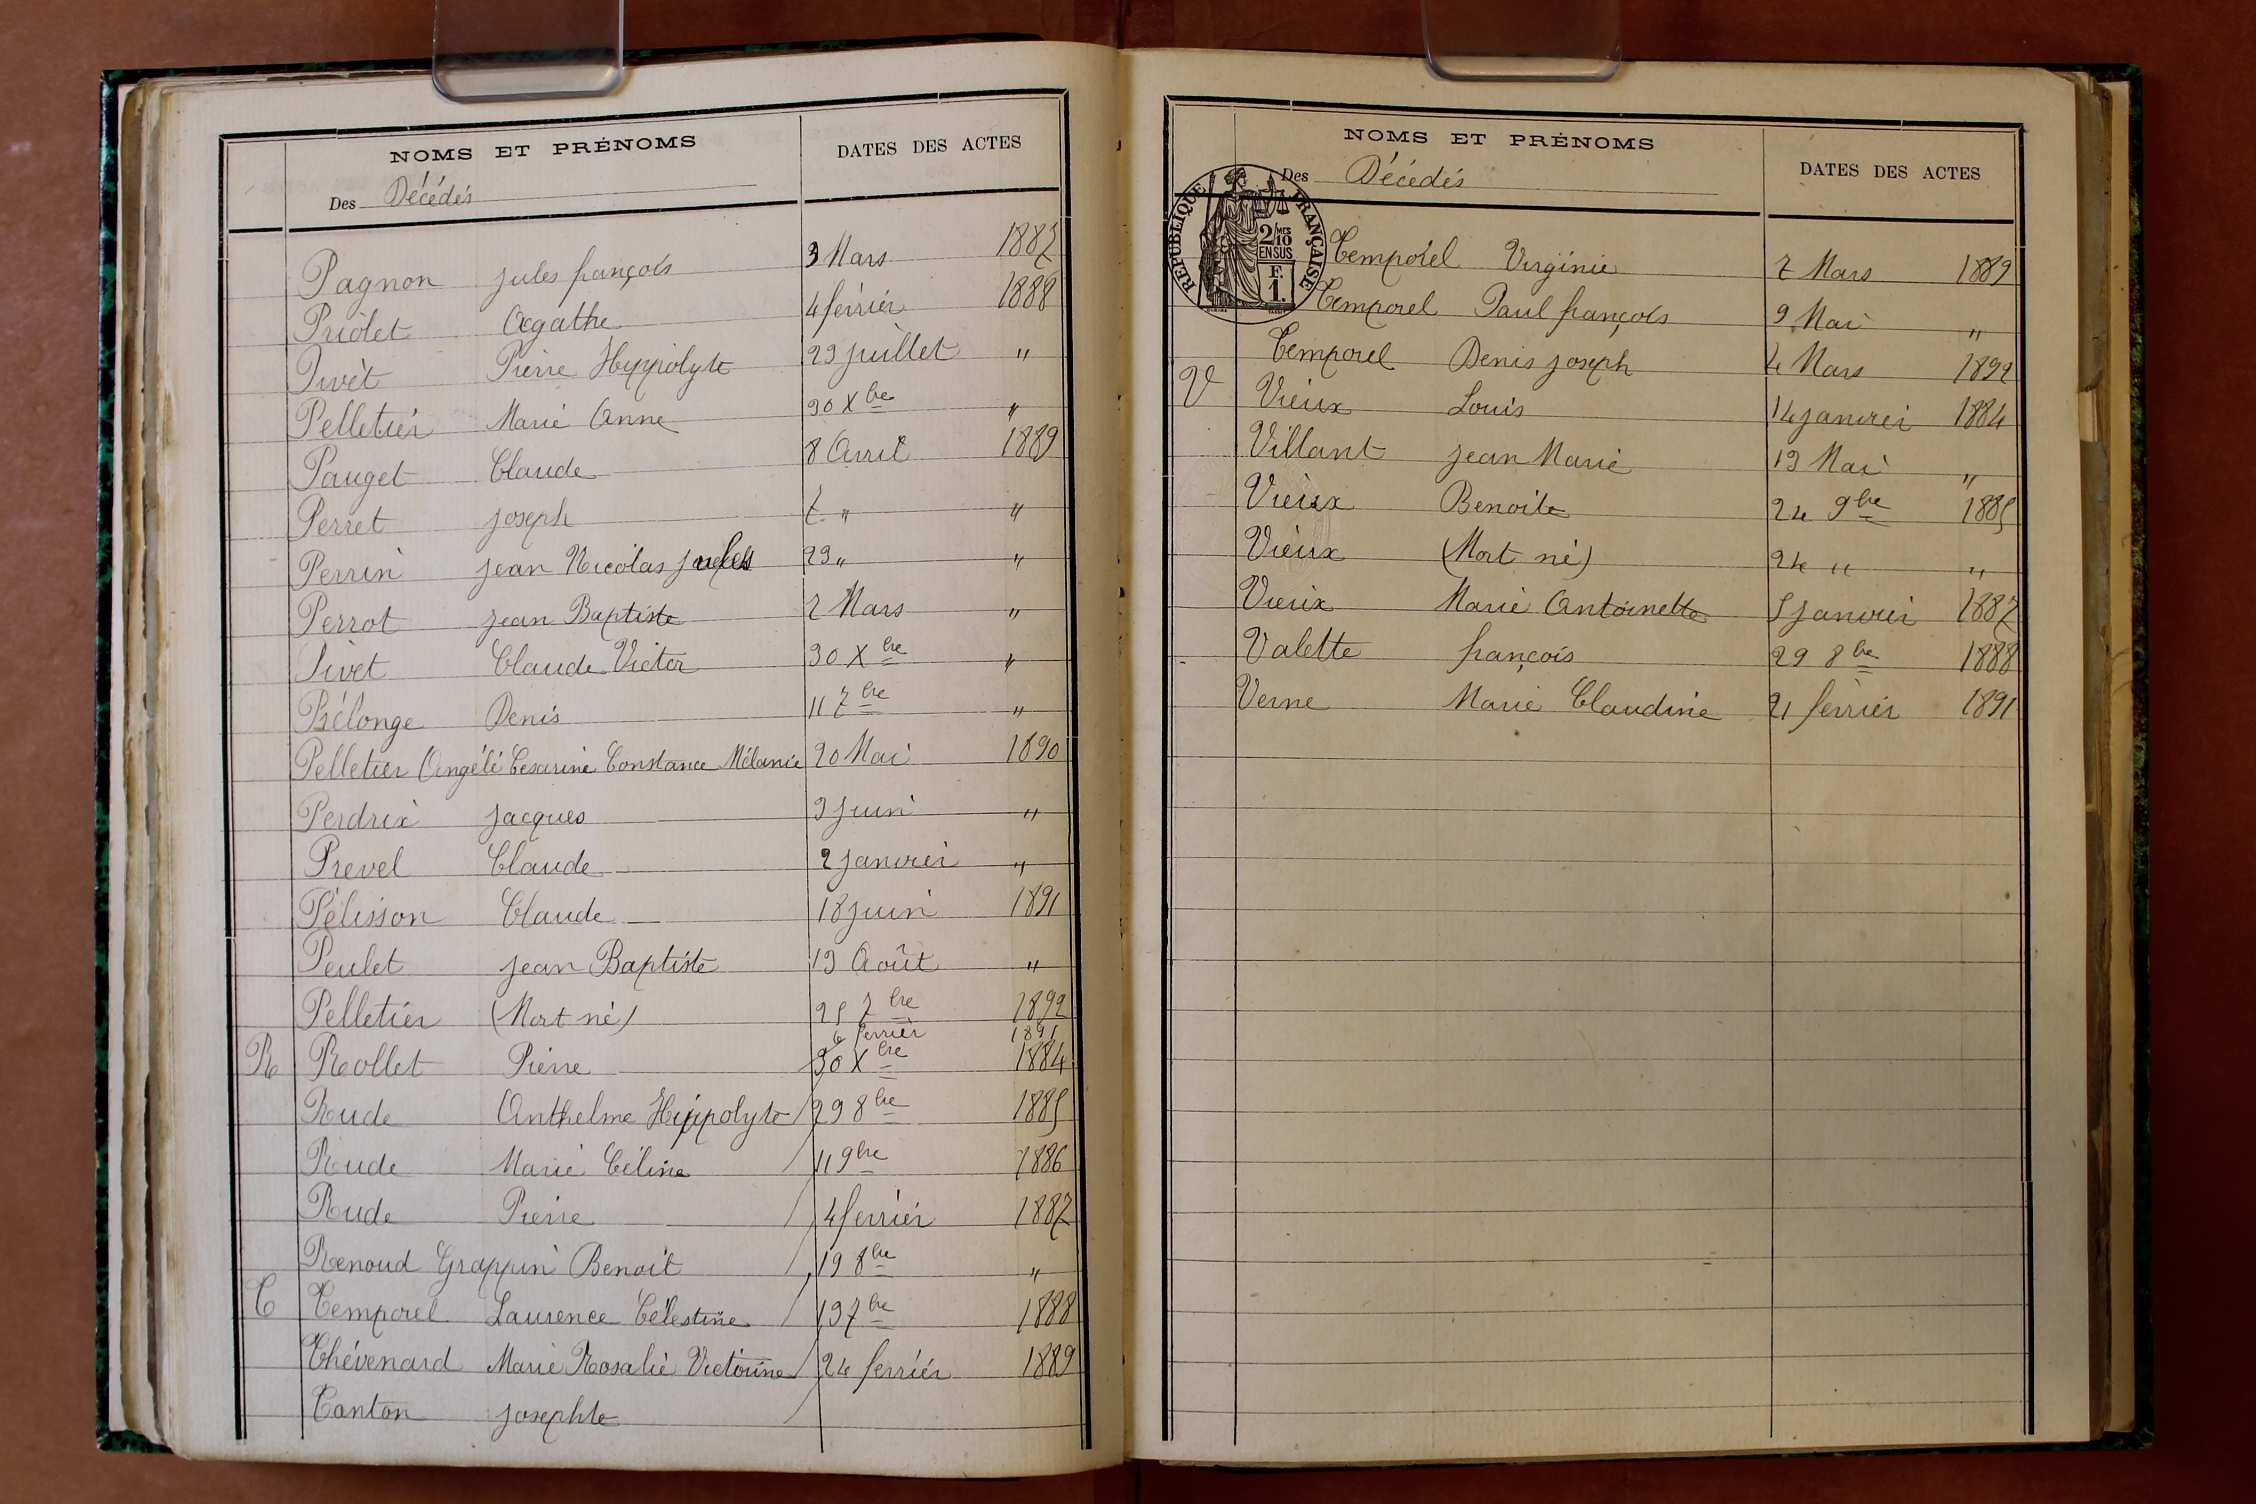 NOMS ET PRÉNOMS DATES DES ACTES
Des Décédés
Pagnon Jules françois 3 Mars 1887
Priolet Agathe 4 février 1888
Pivèt Pierre Hyppolyte 23 juillet "
Pelletier Marie Anne 30 Xbre "
Pauget Claude 8 Avril 1889
Perret joseph 7 " "
Perrin jean Nicolas 23 " "
Perrot jean Baptiste 7 Mars "
Pivet Claude Victor 30 Xbre "
Prélonge Denis 11 7bre "
Pelletier Angéle Césarine Constance Mélanie 20 Mai 1890
Perdrix jacques 3 juin "
Prevel Claude 2 janvier "
Pélisson Claude 18 juin 1891
Peulet jean Baptiste 13 Août "
Pelletier (Mort né) 25 7bre 1892
6 fevrier 1891
R Rollet Pierre 30 Xbre 1884
Rude Anthelme Hyppolyte 29 8bre 1885
Rude Marie Céline 11 9bre 1886
Rude Pierre 4 fevrier 1887
Renoud Grappin Benoit 19 8bre "
T Temporel Laurence Célestine 13 7bre 1888
Thévenard Marie Rosalie Victorine 24 fevrier 1889
Tonton josephte
NOMS ET PRÉNOMS DATES DES ACTES
Des Décédés
RÉPUBLIQUE FRANÇAISE
2/10 MES
EN SUS
F.
1.
Temporel Virginie 7 Mars 1889
Temporel Paul françois 9 Mai "
Temporel Denis joseph 4 Mars 1892
V Vieux Louis 14 janvier 1884
Villant jean Marie 13 Mai "
Vieux Benoite 24 9bre 1885
Vieux (Mort né) 24 " "
Vieux Marie Antoinette 5 janvier 1887
Valette françois 29 8bre 1888
Verne Marie Claudine 21 février 1891